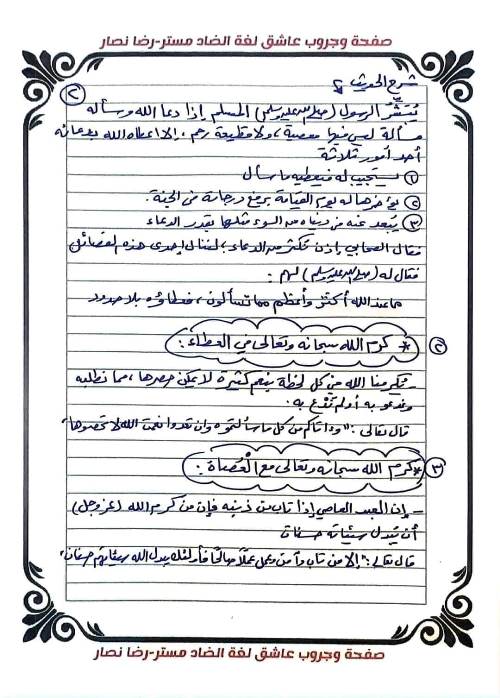 صفحة وجروب عاشق لغة الضاد مستر-رضا نصار
شرح الحديث :
٢
يُبَشِّر الرسول (صلى الله عليه وسلم) المسلم إذا دعا الله وسأله
مسألة ليس فيها معصية، ولا قطيعة رحم، إلا أعطاه الله بدعائه
أحد أمور ثلاثة
① يستجيب له فيعطيه ما سأل
② يؤخرها له يوم القيامة برفع درجاته في الجنة.
③ يُبعد عنه من دنياه من السوء مثلها بقدر الدعاء
فقال الصحابي إذن نكثر من الدعاء؛ لننال إحدى هذه الفضائل
فقال له (صلى الله عليه وسلم) لهم :
ما عند الله أكثر وأعظم مما تسألون، فعطاؤه بلا حدود
② * كرم الله سبحانه وتعالى في العطاء :
- يكرمنا الله في كل لحظة بنعم كثيرة لا يمكن حصرها، مما نطلبه
وندعو به أو لم نَدْعُ به.
قال تعالى : "وءاتاكم من كل ما سألتموه وإن تعدوا نعمت الله لا تحصوها"
③ * كرم الله سبحانه وتعالى مع العُصاة :
- إن العبد العاصي إذا تاب من ذنبه فإن من كرم الله (عز وجل)
أن يُبدل سيئاته حسنات
قال تعالى : "إلا من تاب وآمن وعمل عملًا صالحًا فأولئك يبدل الله سيئاتهم حسنات"
صفحة وجروب عاشق لغة الضاد مستر-رضا نصار